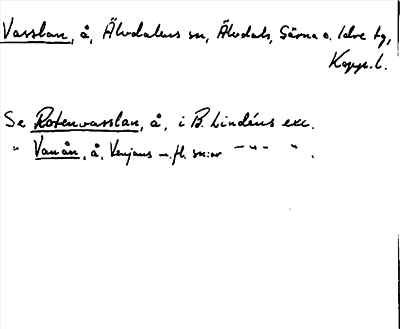 Vasslan, å, Älvdalens sn, Älvdals, Särna o. Idre tg,
Kopp. l.
Se Rotenvasslan, å, i B. Lindéns exc.
" Vanån, å, Venjans m. fl. sn:ar — " — " .